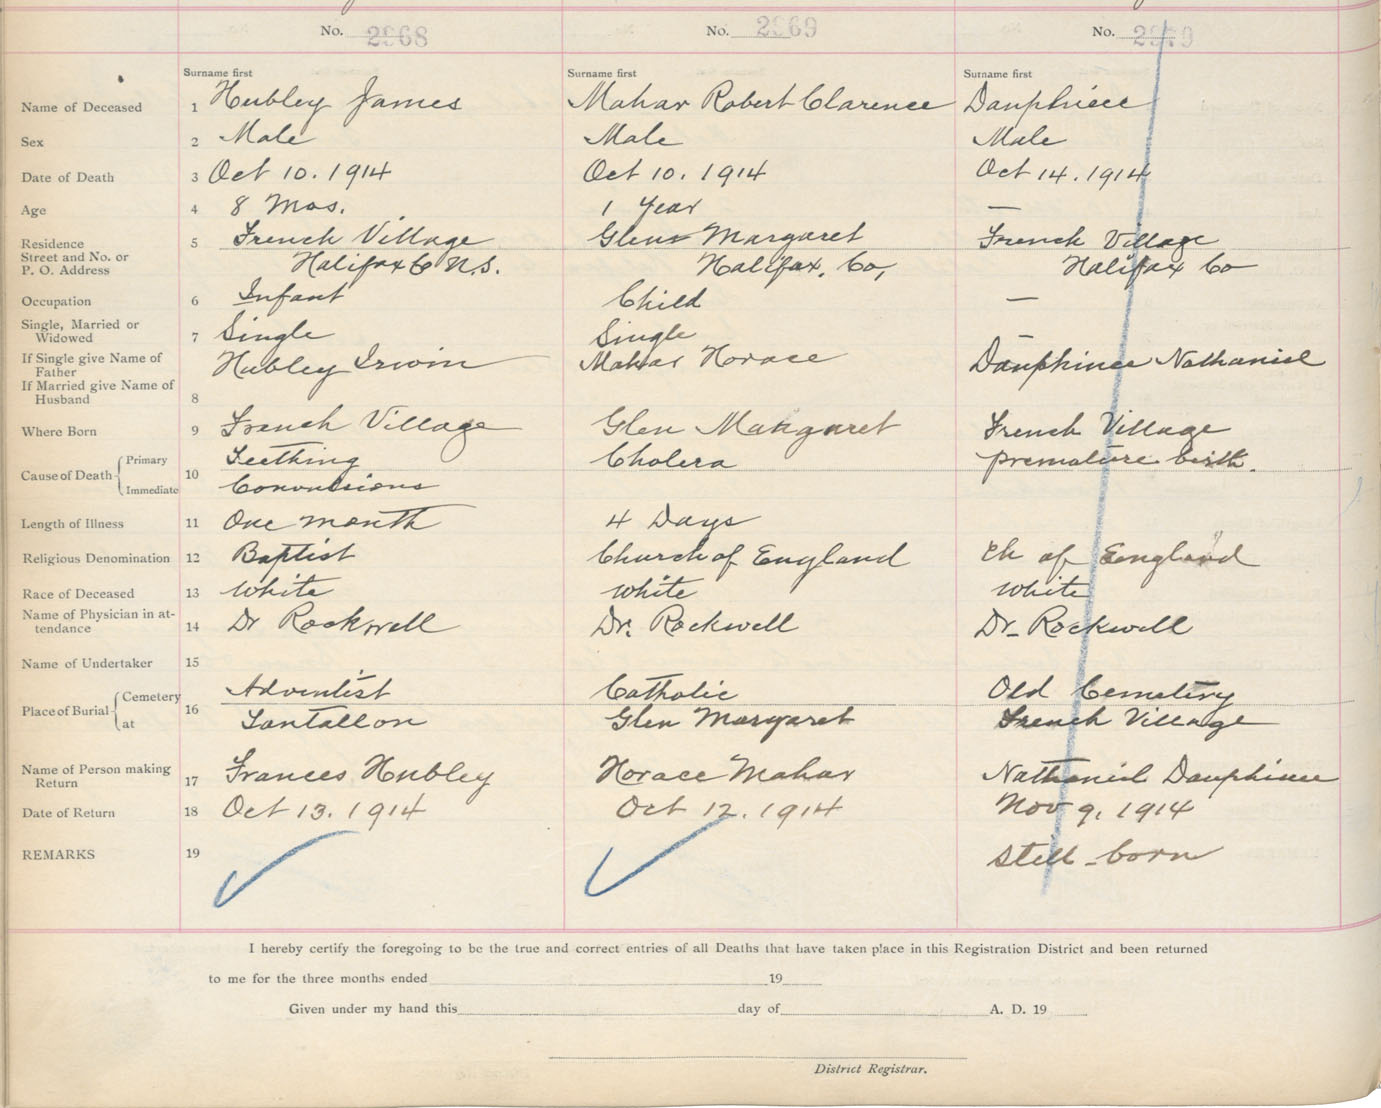 No. 2968 No. 2969 No. 2979
Surname first Surname first Surname first
Name of Deceased 1 Hubley James Mahar Robert Clarence Dauphinee
Sex 2 Male Male Male
Date of Death 3 Oct 10. 1914 Oct 10. 1914 Oct 14. 1914
Age 4 8 Mos. 1 Year —
Residence 5 French Village Glen Margaret French Village
Street and No. or
P. O. Address Halifax Co N.S. Halifax. Co, Halifax Co
Occupation 6 Infant Child —
Single, Married or
Widowed 7 Single Single —
If Single give Name of
Father Hubley Irwin Mahar Horace Dauphinee Nathaniel
If Married give Name of
Husband 8
Where Born 9 French Village Glen Margaret French Village
Cause of Death Primary 10 Teething Cholera premature birth.
Immediate Convulsions
Length of Illness 11 One month 4 Days
Religious Denomination 12 Baptist Church of England Ch of England
Race of Deceased 13 White White White
Name of Physician in at-
tendance 14 Dr Rockwell Dr. Rockwell Dr- Rockwell
Name of Undertaker 15
Place of Burial Cemetery 16 Adventist Catholic Old Cemetery
at Tantallon Glen Margaret French Village
Name of Person making
Return 17 Frances Hubley Horace Mahar Nathaniel Dauphinee
Date of Return 18 Oct 13. 1914 Oct 12. 1914 Nov 9. 1914
REMARKS 19 Still-born
I hereby certify the foregoing to be the true and correct entries of all Deaths that have taken place in this Registration District and been returned
to me for the three months ended 19
Given under my hand this day of A. D. 19
District Registrar.